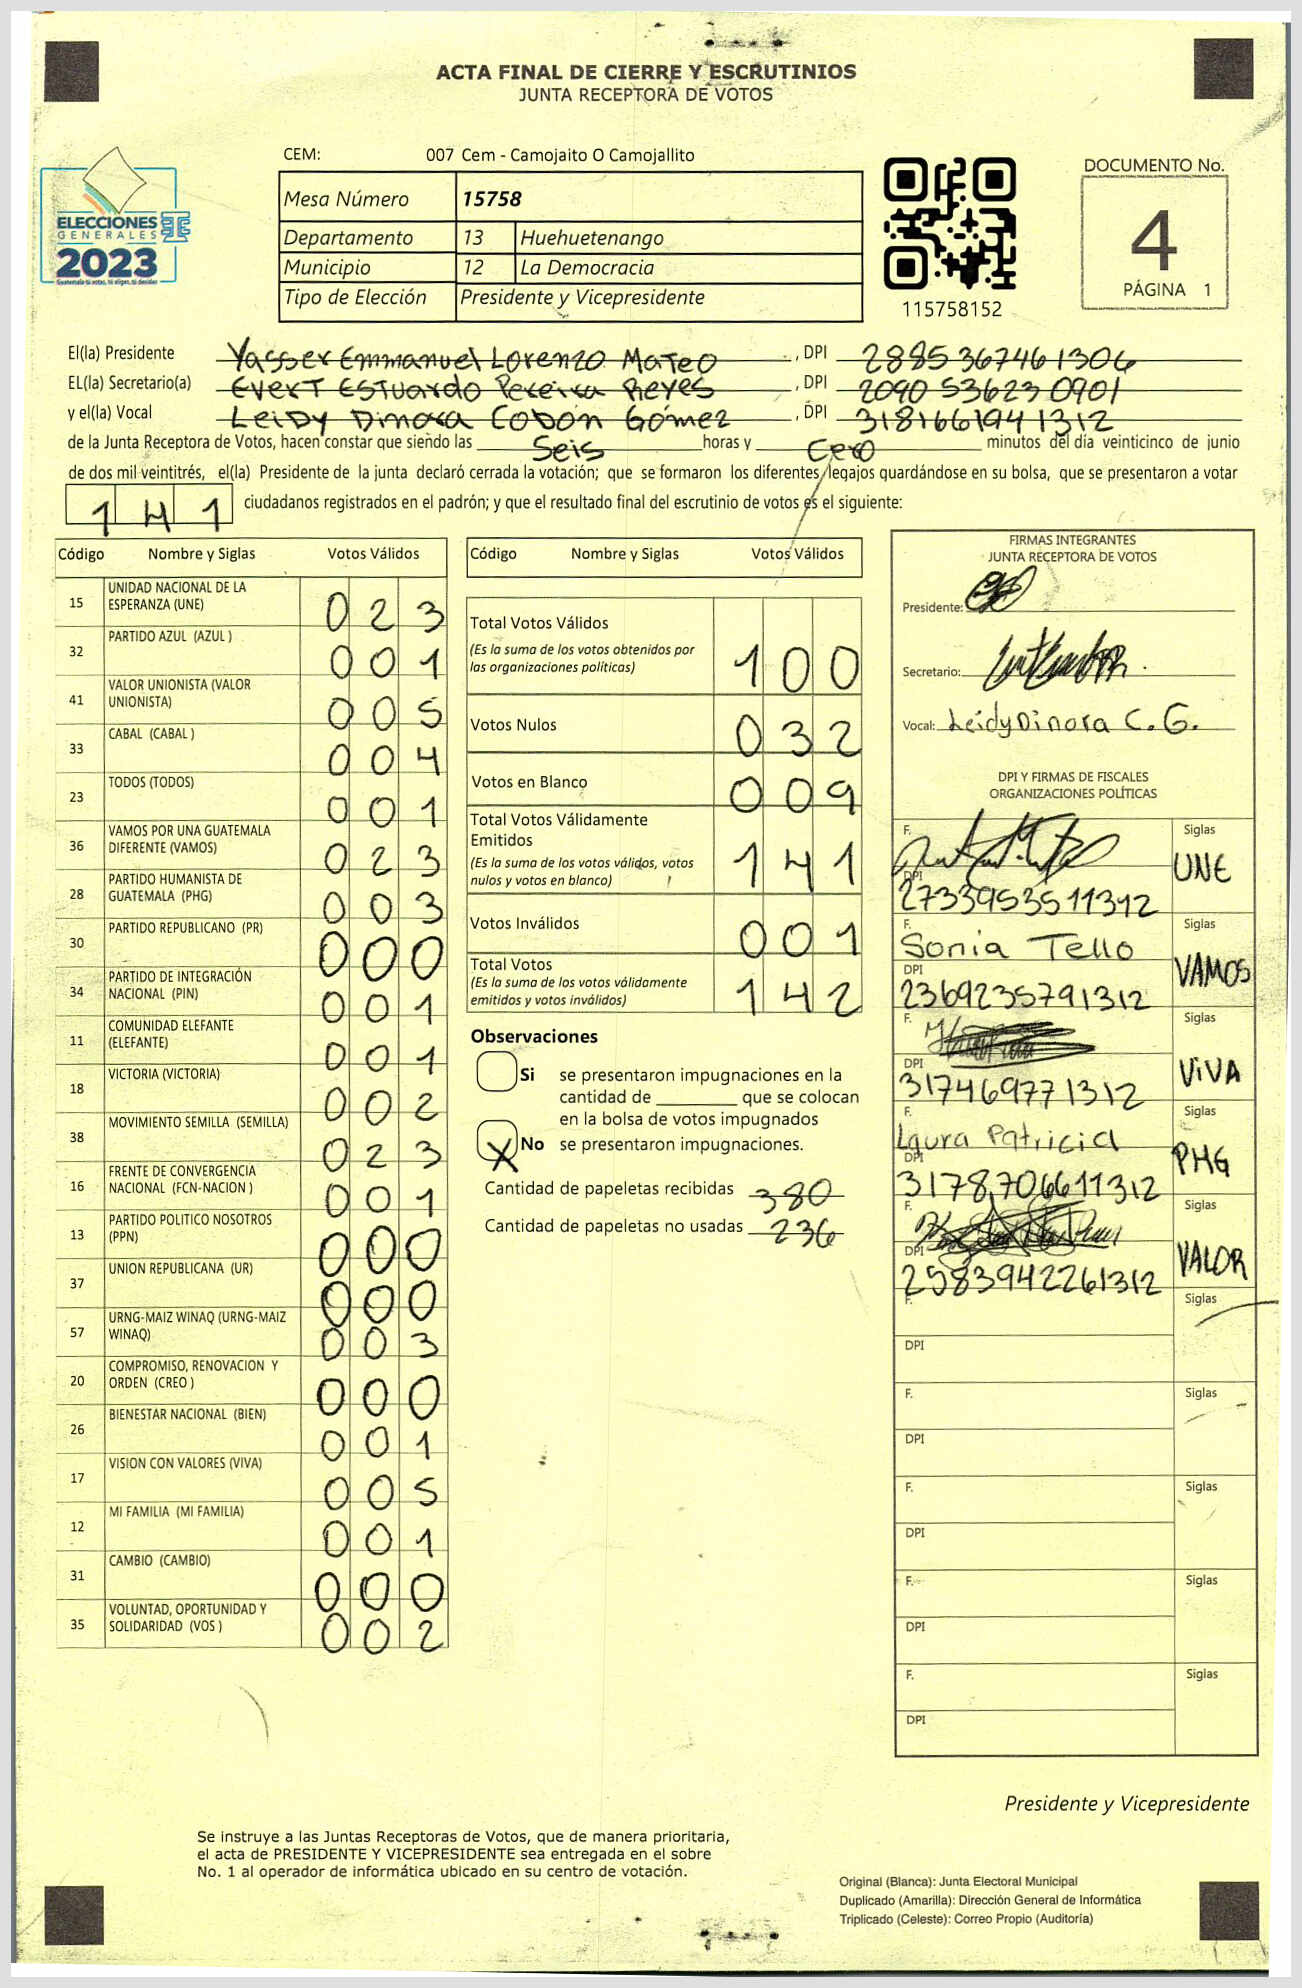 ACTA FINAL DE CIERRE Y ESCRUTINIOS
JUNTA RECEPTORA DE VOTOS
ELECCIONES
GENERALES
2023
Guatemala tú votas, tú eliges, tú decides
CEM: 007 Cem - Camojaito O Camojallito
Mesa Número 15758
Departamento 13 Huehuetenango
Municipio 12 La Democracia
Tipo de Elección Presidente y Vicepresidente
115758152
DOCUMENTO No.
4
PÁGINA 1
El(la) Presidente Yasser Emmanuel Lorenzo Mateo, DPI 2885367461306
EL(la) Secretario(a) Evert Estuardo Pereira Reyes, DPI 2090536230901
y el(la) Vocal Leidy Dinora Cobón Gómez, DPI 3181661941312
de la Junta Receptora de Votos, hacen constar que siendo las Seis horas y Cero minutos del día veinticinco de junio
de dos mil veintitrés, el(la) Presidente de la junta declaró cerrada la votación; que se formaron los diferentes legajos quardándose en su bolsa, que se presentaron a votar
141 ciudadanos registrados en el padrón; y que el resultado final del escrutinio de votos es el siguiente:
Código Nombre y Siglas Votos Válidos
15 UNIDAD NACIONAL DE LA ESPERANZA (UNE) 023
32 PARTIDO AZUL (AZUL ) 001
41 VALOR UNIONISTA (VALOR UNIONISTA) 005
33 CABAL (CABAL ) 004
23 TODOS (TODOS) 001
36 VAMOS POR UNA GUATEMALA DIFERENTE (VAMOS) 023
28 PARTIDO HUMANISTA DE GUATEMALA (PHG) 003
30 PARTIDO REPUBLICANO (PR) 000
34 PARTIDO DE INTEGRACIÓN NACIONAL (PIN) 001
11 COMUNIDAD ELEFANTE (ELEFANTE) 001
18 VICTORIA (VICTORIA) 002
38 MOVIMIENTO SEMILLA (SEMILLA) 023
16 FRENTE DE CONVERGENCIA NACIONAL (FCN-NACION ) 001
13 PARTIDO POLITICO NOSOTROS (PPN) 000
37 UNION REPUBLICANA (UR) 000
57 URNG-MAIZ WINAQ (URNG-MAIZ WINAQ) 003
20 COMPROMISO, RENOVACION Y ORDEN (CREO ) 000
26 BIENESTAR NACIONAL (BIEN) 001
17 VISION CON VALORES (VIVA) 005
12 MI FAMILIA (MI FAMILIA) 001
31 CAMBIO (CAMBIO) 000
35 VOLUNTAD, OPORTUNIDAD Y SOLIDARIDAD (VOS ) 002
Código Nombre y Siglas Votos Válidos
Total Votos Válidos
(Es la suma de los votos obtenidos por
las organizaciones políticas) 100
Votos Nulos 032
Votos en Blanco 009
Total Votos Válidamente
Emitidos
(Es la suma de los votos válidos, votos
nulos y votos en blanco) 141
Votos Inválidos 001
Total Votos
(Es la suma de los votos válidamente
emitidos y votos inválidos) 142
Observaciones
Si se presentaron impugnaciones en la
cantidad de ________ que se colocan
en la bolsa de votos impugnados
X No se presentaron impugnaciones.
Cantidad de papeletas recibidas 380
Cantidad de papeletas no usadas 236
FIRMAS INTEGRANTES
JUNTA RECEPTORA DE VOTOS
Presidente:
Secretario:
Vocal: Leidy Dinora C. G.
DPI Y FIRMAS DE FISCALES
ORGANIZACIONES POLÍTICAS
F. Siglas
DPI 2733953511312 UNE
F. Sonia Tello Siglas
DPI 2369235791312 VAMOS
F. Siglas
DPI 3174697711312 ViVA
F. Laura Patricia Siglas
DPI 3178706611312 PHG
F. Siglas
DPI 2583942261312 VALOR
F. Siglas
DPI
F. Siglas
DPI
F. Siglas
DPI
F. Siglas
DPI
F. Siglas
DPI
Presidente y Vicepresidente
Se instruye a las Juntas Receptoras de Votos, que de manera prioritaria,
el acta de PRESIDENTE Y VICEPRESIDENTE sea entregada en el sobre
No. 1 al operador de informática ubicado en su centro de votación.
Original (Blanca): Junta Electoral Municipal
Duplicado (Amarilla): Dirección General de Informática
Triplicado (Celeste): Correo Propio (Auditoría)